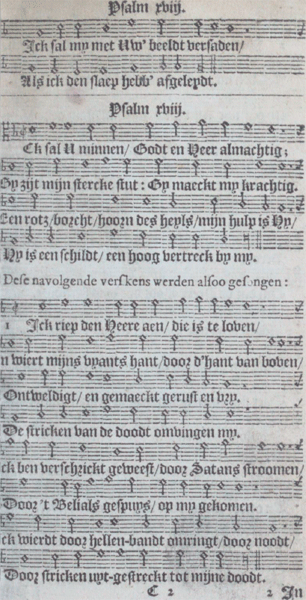 Psalm xvij.
Ick sal my met Uw' beeldt versaden/
Als ick den slaep hebb' afgeleydt.
Psalm xviij.
Ck sal U minnen/ Godt en Heer almachtig;
Gy zijt mijn stercke stut: Gy maeckt my krachtig.
Een rotz/borcht/hoorn des heyls/mijn hulp is Hy/
Hy is een schildt/ een hoog vertreck by my.
Dese navolgende verskens werden alsoo gesongen:
1 Ick riep den Heere aen/ die is te loven/
n wiert mijns vyants hant/door d'hant van boven/
Ontweldigt/ en gemaeckt gerust en vry.
De stricken van de doodt omvingen my.
ck ben verschrickt geweest/door Satans stroomen/
Door 't Belials gespuys/ op my gekomen.
ck wierdt door hellen-bandt omringt/door noodt/
Door stricken uyt-gestreckt tot mijne doodt.
C 2 2 In